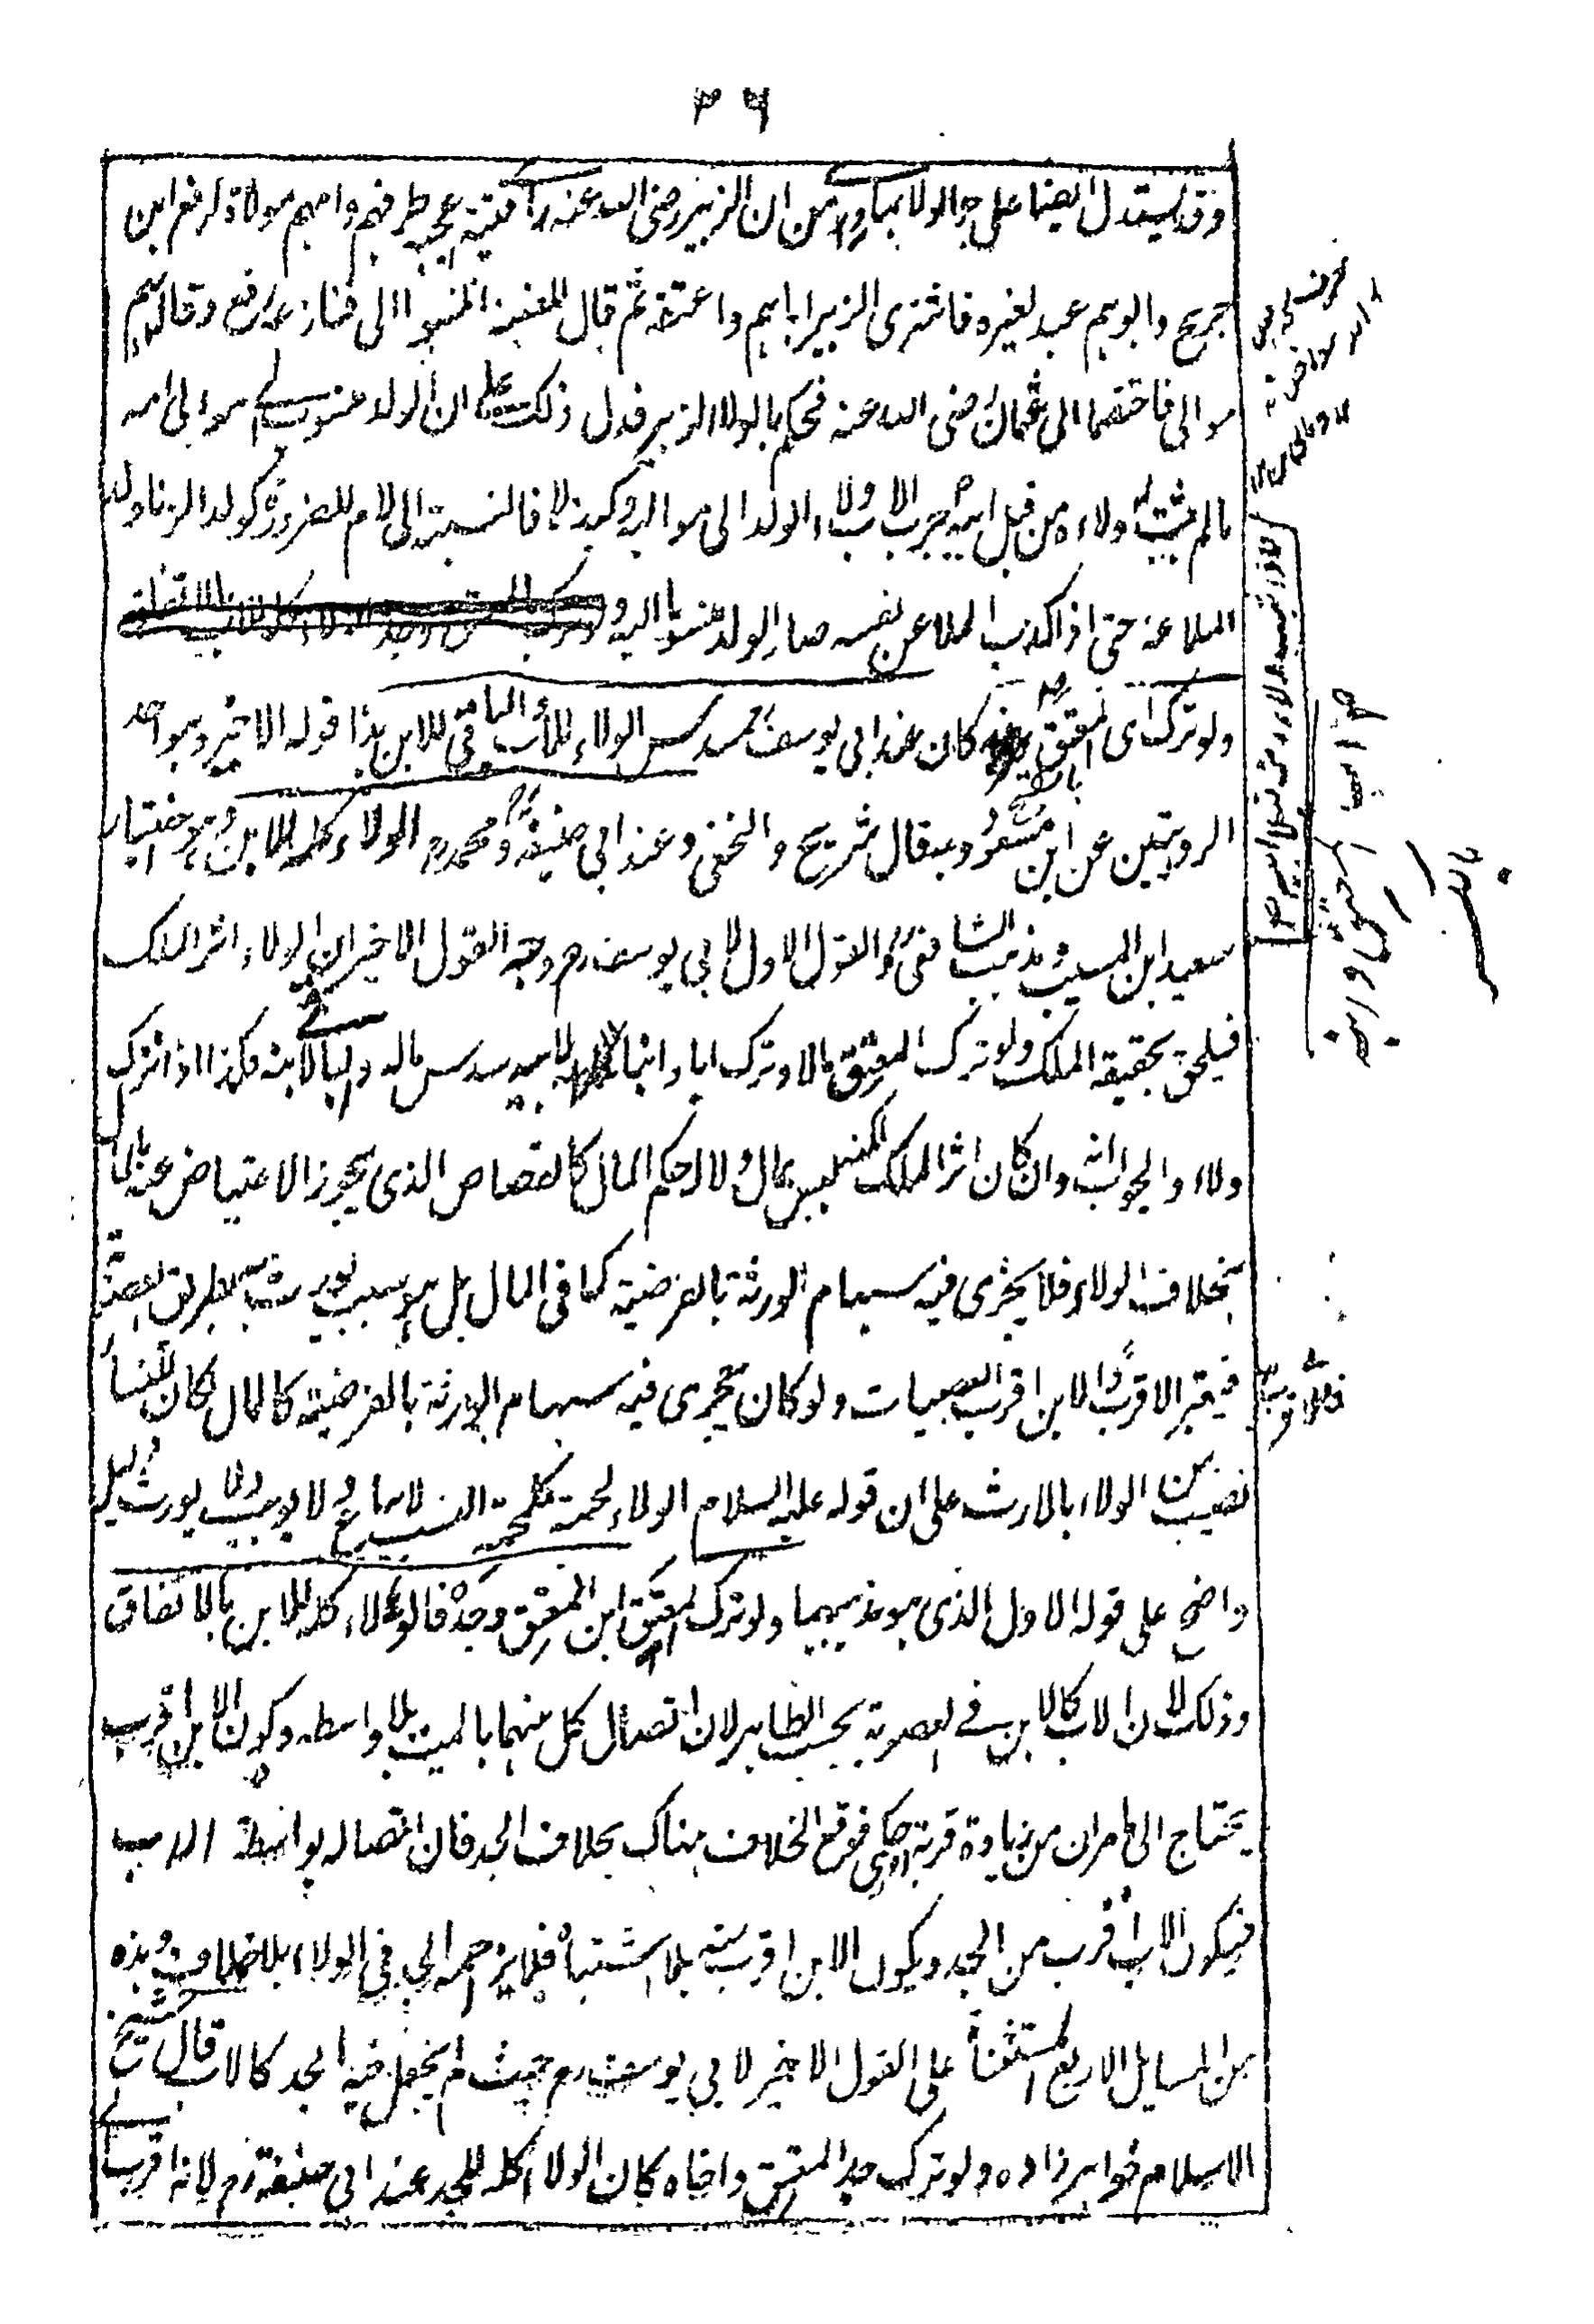 ٣٦
وقد يستدل ايضا على جر الولاء بما روى من ان الزبير رضى الله عنه راى فتية بخيبر اعجبه ظرفهم وامهم مولاة لرافع ابن
جريج وابوهم عبد لغيره فاشترى الزبير اباهم واعتقه ثم قال للفتية انتسبوا الى فنازعه رافع وقال هم
موالى فاختصما الى عثمان رضى الله عنه فحكم بالولاء للزبير فدل ذلك على ان الولد منسوب الى موالى امه
مالم يثبت له ولاء من قبل ابيه جر الاب ولاء الولد الى مواليه وكيف لا فالنسبة الى الام للضرورة كولد الزنا وولد
الملاعنة حتى اذا اكذب الملاعن نفسه صار الولد منسوبا اليه
ولو ترك اى المعتق كان عند ابى يوسف سدس الولاء للاب والباقى للابن هذا قوله الاخير وهو احد
الروايتين عن ابن مسعود وبه قال شريح والنخعى وعند ابى حنيفة ومحمد رح الولاء كله للابن وهو اختيار
سعيد ابن المسيب ومذهب الشافعى والقول الاول لابى يوسف رح وجه القول الاخير ان الولاء اثر الملك
فيلحق بحقيقة الملك ولو ترك المعتق مالا وترك ابا وابنا لابيه سدس ماله والباقى لابنه فكذا اذا ترك
ولاء والجواب انه وان كان اثر الملك لكنه ليس بمال ولا له حكم المال كالقصاص الذى يجوز الاعتياض عنه بالمال
بخلاف الولاء فلا يجرى فيه سهام الورثة بالفرضية كما فى المال بل هو سبب يورث به بطريق العصوبة
فيعتبر الاقرب والابن اقرب العصبات ولو كان يجرى فيه سهام الورثة بالفرضية كالمال لكان للنساء
نصيب من الولاء بالارث على ان قوله عليه السلام الولاء لحمة كلحمة النسب لا يباع ولا يوهب ولا يورث دليل
واضح على قوله الاول الذى هو مذهبهما ولو ترك المعتق ابن المعتق وجده فالولاء كله للابن بالاتفاق
وذلك لان الاب كالابن فى العصوبة بحسب الظاهر لان اتصال كل منهما بالميت بلا واسطه وكون الابن اقرب
يحتاج الى ما مر ان من زيادة قربة حكمى فوقع الخلاف هناك بخلاف الجد فان اتصاله بواسطة الاب
فيكون الاب اقرب من الجد ويكون الابن اقرب منه بلا اشتباه فلا يزاحمه الجد فى الولاء بلا خلاف وهذه
من المسايل الاربع المستثناة على القول الاخير لابى يوسف رح حيث لم يجعل فيه الجد كالاب قال شيخ
الاسلام خواهر زاده ولو ترك جد المعتق واخاه كان الولاء كله للجد عند ابى حنيفة رح لانه اقرب